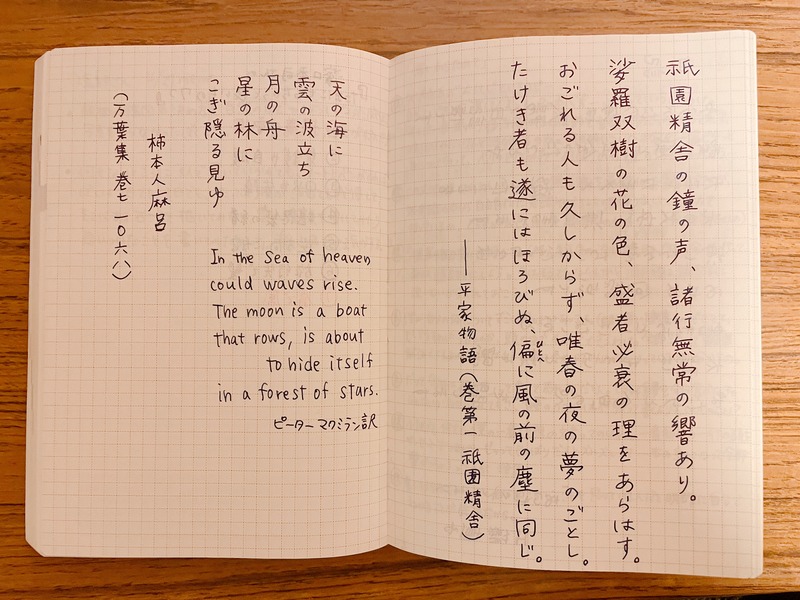 祇園精舎の鐘の声、諸行無常の響あり。
娑羅双樹の花の色、盛者必衰の理をあらはす。
おごれる人も久しからず、唯春の夜の夢のごとし。
たけき者も遂にはほろびぬ、偏に風の前の塵に同じ。
ひとへ
——平家物語(巻第一 祇園精舎)
天の海に
雲の波立ち
月の舟
星の林に
こぎ隠る見ゆ
柿本人麻呂
(万葉集 巻七 一〇六八)
In the sea of heaven
could waves rise.
The moon is a boat
that rows, is about
to hide itself
in a forest of stars.
ピーター マクミラン訳